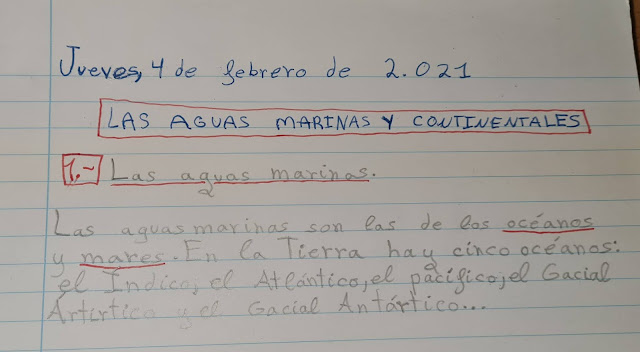 Jueves, 4 de febrero de 2.021
LAS AGUAS MARINAS Y CONTINENTALES
1.- Las aguas marinas.
Las aguas marinas son las de los océanos
y mares. En la Tierra hay cinco océanos:
el Índico, el Atlántico, el pacífico, el Gacial
Ártirtico y el Gacial Antártico...